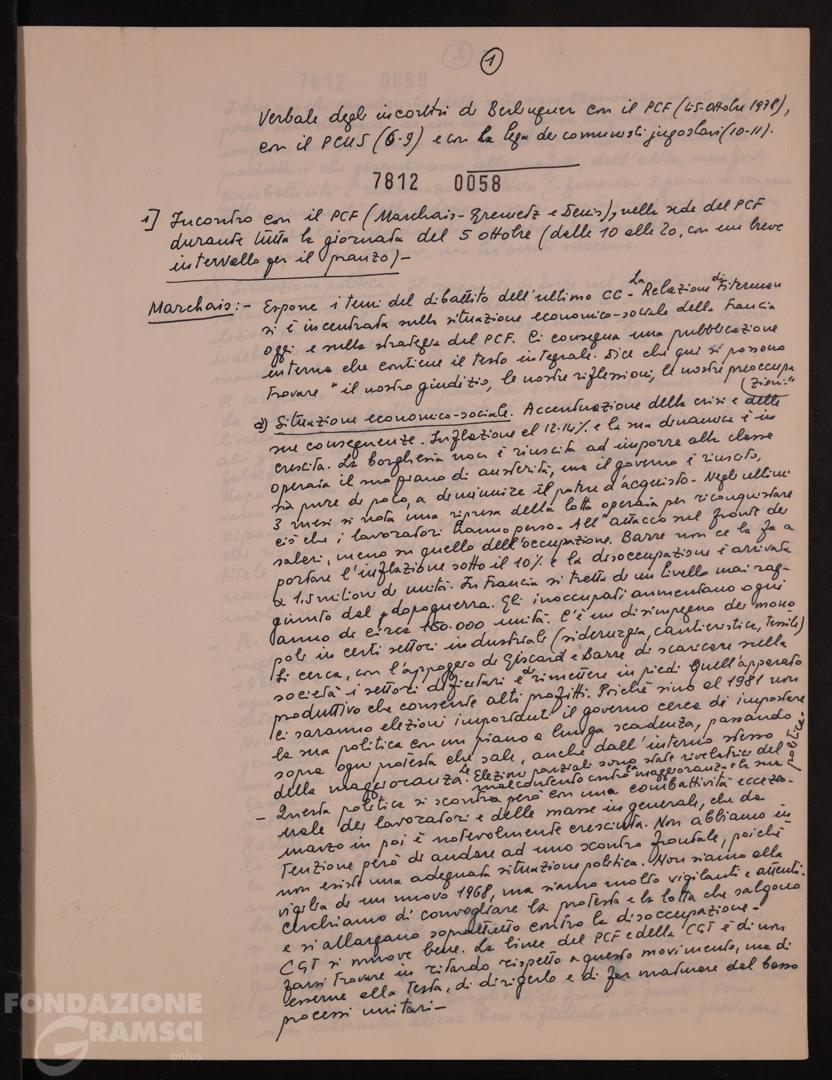 1
Verbale degli incontri di Berlinguer con il PCF (4-5 ottobre 1978),
con il PCUS (6-9) e con la lega dei comunisti jugoslavi (10-11).
7812 0058
1] Incontro con il PCF (Marchais-Gremetz e Denis), nella sede del PCF
durante tutta la giornata del 5 ottobre (dalle 10 alle 20, con un breve
intervallo per il pranzo) -
Marchais: - Espone i temi del dibattito dell'ultimo CC - La Relazione di Fiterman
si è incentrata sulla situazione economico-sociale della Francia
oggi e sulla strategia del PCF. Ci consegna una pubblicazione
interna che contiene il testo integrale. Dice che qui si possono
trovare "il nostro giudizio, le nostre riflessioni, le nostre preoccupa
zioni"
a) Situazione economico-sociale. Accentuazione della crisi e delle
sue conseguenze. Inflazione al 12-14% e la sua dinamica è in
crescita. La borghesia non è riuscita ad imporre alla classe
operaia il suo piano di austerità, ma il governo è riuscito,
sia pure di poco, a diminuire il potere d'acquisto - Negli ultimi
3 mesi si nota una ripresa della lotta operaia per riconquistare
ciò che i lavoratori hanno perso - All'attacco sul fronte dei
salari, meno su quello dell'occupazione. Barre non ce la fa a
portare l'inflazione sotto il 10% e la disoccupazione è arrivata
a 1,5 milioni di unità. In Francia si tratta di un livello mai rag-
giunto dal dopoguerra. Gli inoccupati aumentano ogni
anno di circa 150.000 unità. C'è un disimpegno dei mono
poli in certi settori industriali (siderurgia, cantieristica, tessile)
Si cerca, con l'appoggio di Giscard e Barre di scaricare sulla
società i settori deficitari e di rimettere in piedi quell'apparato
produttivo che consente alti profitti. Poiché sino al 1981 non
ci saranno elezioni importanti il governo cerca di impostare
la sua politica con un piano a lunga scadenza, passando
sopra ogni protesta che sale, anche dall'interno stesso
della maggioranza. Le Elezioni parziali sono state rivelatrici del
malcontento contro la maggioranza e la sua politica.
- Questa politica si scontra però con una combattività eccezio-
nale dei lavoratori e delle masse in generale, che da
marzo in poi è notevolmente cresciuta. Non abbiamo in
tenzione però di andare ad uno scontro frontale, poiché
non esiste una adeguata situazione politica. Non siamo alla
vigilia di un nuovo 1968, ma siamo molto vigilanti e attenti.
Cerchiamo di convogliare la protesta e la lotta che salgono
e si allargano soprattutto contro la disoccupazione -
CGT si muove bene. La linea del PCF e della CGT è di non
farsi trovare in ritardo rispetto a questo movimento, ma di
esserne alla testa, di dirigerlo e di far maturare dal basso
processi unitari -
FONDAZIONE
GRAMSCI
onlus